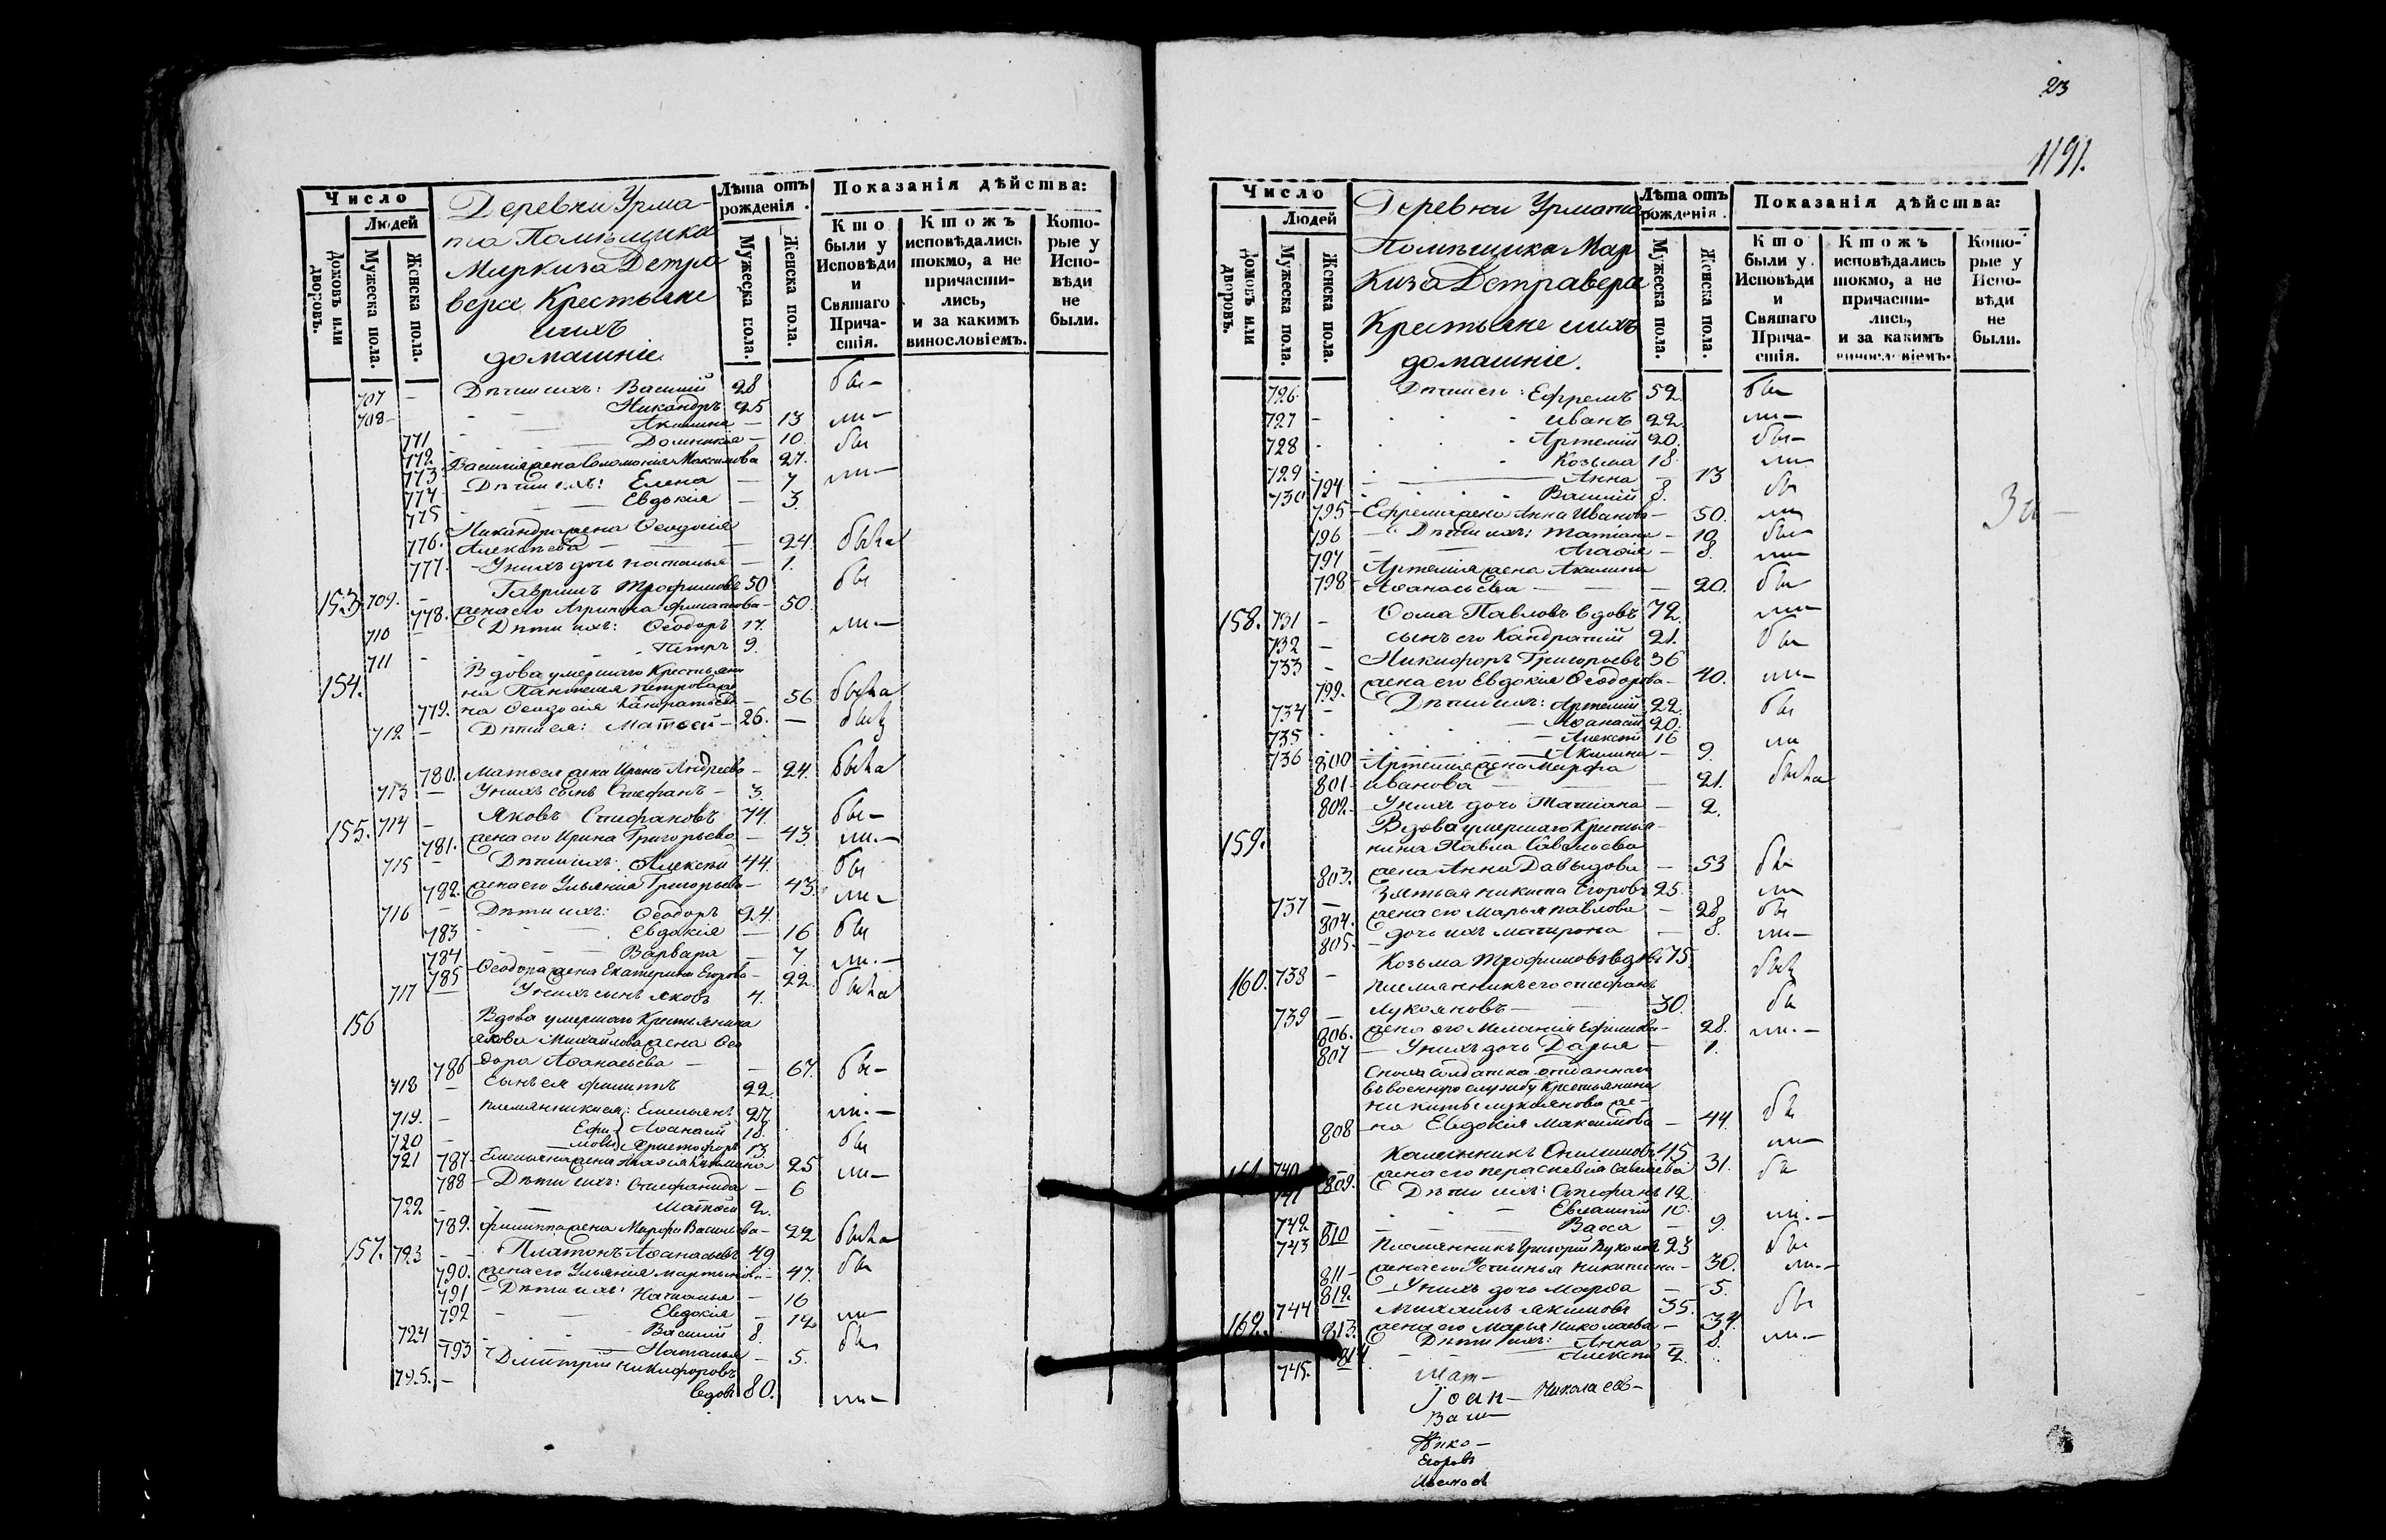 Число
Людей
Домовъ или дворовъ.
Мужеска пола.
Женска пола.
Деревни Урма-
та Помѣщика
Маркиза Детра
верса Крестьяне
ихъ
домашніе
Лѣта отъ рожденія.
Мужеска пола.
Женска пола.
Показанія дѣйства:
Кто были у Исповѣди и Святаго Причастія.
Ктожъ исповѣдались токмо, а не причастились, и за какимъ винословіемъ.
Которые у Исповѣди не были.
707 Дѣти ихъ: Василій 28 бы-
708 Никандръ 25
771 Акилина 13 ли-
772 Домникія 10. бы
773 Василія жена Соломонія Максимова 27.
774 Дѣти ихъ: Елена 7 ли-
775 Евдокія 3.
Никандра жена Ѳеодосія
776. Алексѣева 24 была
777 У нихъ дочь Наталья 1.
153 709. Гавріилъ Трофимовъ 50 бы
778. жена его Агрипина Филатова 50.
710 Дѣти ихъ: Ѳеодоръ 17. ли-
711 Петръ 9.
154. Вдова умершаго Крестьяни
на Пантелея Петрова же
779. на Ѳеодосія Кандратьева 56 была
712 Дѣти ея: Матѳей 26. былъ
780. Матѳея жена Ирина Андреева 24. была
713 У нихъ сынъ Стефанъ 3.
155. 714 Яковъ Стефановъ 74. бы-
781. жена его Ирина Григорьева 43. ли-
715 Дѣти ихъ: Алексѣй 44. бы
782. жена его Ульянія Григорьева 43. ли-
716 Дѣти ихъ: Ѳеодоръ 24.
783 Евдокія 16 бы
784 Варвара 7. ли.-
785 Ѳеодора жена Екатерина Егорова 22. была
717 У нихъ сынъ Яковъ 4.
156 Вдова умершаго Крестьянина
Якова Михайлова жена Ѳео
786 дора Аѳанасьева 67. бы-
718 Сынъ ея Филиппъ 22.
719. Племянники ея: Емельянъ 27. ли.-
720 Ефи- Аѳанасій 18.
721 мовы Христофоръ 13 бы
787 Емельяна жена Кузмина 25
788 Дѣти ихъ: Стефанида 6 ли-
722 Матѳей 2.
789. Филиппа жена Марфа Васильева 22 была
157. 723 Платонъ Аѳанасьевъ 49 бы
790. жена его Ульянія Мартынова 47.
791 Дѣти ихъ: Наталья 16
792 Евдокія 12 ли-
724 Василій 8.
793 Наталья 5. бы
725. Дмитрій Никифоровъ
вдовъ 80. ли-
23
1191.
Число
Людей
Домовъ или дворовъ.
Мужеска пола.
Женска пола.
Деревни Урмата
Помѣщика Мар
киза Детраверса
Крестьяне ихъ
домашніе.
Лѣта отъ рожденія.
Мужеска пола.
Женска пола.
Показанія дѣйства:
Кто были у Исповѣди и Святаго Причастія.
Ктожъ исповѣдались токмо, а не причастились, и за какимъ винословіемъ.
Которые у Исповѣди не были.
726. Дѣти его: Ефремъ 52. бы
727 Иванъ 22. ли-
728 Артемій 20. бы-
729 Козьма 18. ли
794 Анна 13
730 Василій 8. бы
795 Ефрема жена Анна Иванова 50. ли
796 Дѣти ихъ: Татіана 10. бы
797 Агафія 8. ли-
Артемія жена Акилина
798 Аѳанасьева 20. бы
158. 731 Ѳома Павловъ вдовъ 72. ли-
732 сынъ его Кандратій 21. бы
733 Никифоръ Григорьевъ 36
799. жена его Евдокія Ѳеодорова 40. ли-
734 Дѣти ихъ: Артемій 22. бы
735 Аѳанасій 20.
736 Алексѣй 16 ли
800 Акилина 9.
Артемія жена Марфа
801 Иванова 21. была
802 У нихъ дочь Татіана 2.
159. Вдова умершаго Крестья-
нина Павла Савельева
803. жена Анна Давыдова 53 бы
737 Зять ея Никита Егоровъ 25. ли
804. жена его Марья Павлова 28. бы
805. дочь ихъ Матрона 8. ли-
160. 738 Козьма Трофимовъ вдовъ 75. былъ
Племянникъ его Стефанъ
739 Лукояновъ 30. бы
806. жена его Меланія Ефимова 28. ли.-
807 У нихъ дочь Дарья 1.
Сноха Солдатка отданнаго
въ военную службу Крестьянина
Никиты Лукоянова же-
808 на Евдокія Максимова 44. бы
161. 740 Спиридоновъ 45 ли-
809. жена его Параскевія Савельева 31. бы
741 Дѣти ихъ: Стефанъ 12.
742 Евлампій 10. ли.-
810 Васса 9.
743 Племянникъ Григорій 23 бы
811 жена его Устинья Никитина 30. ли.-
812. У нихъ дочь Марѳа 5.
162. 744 Михаилъ Якимовъ 35. бы
813. жена его Марья Николаева 34.
814. Дѣти ихъ: Анна 8. ли.-
745. Алексѣй 2.
Іоан- Николаев-
Васи-
Нико-
Егоровъ